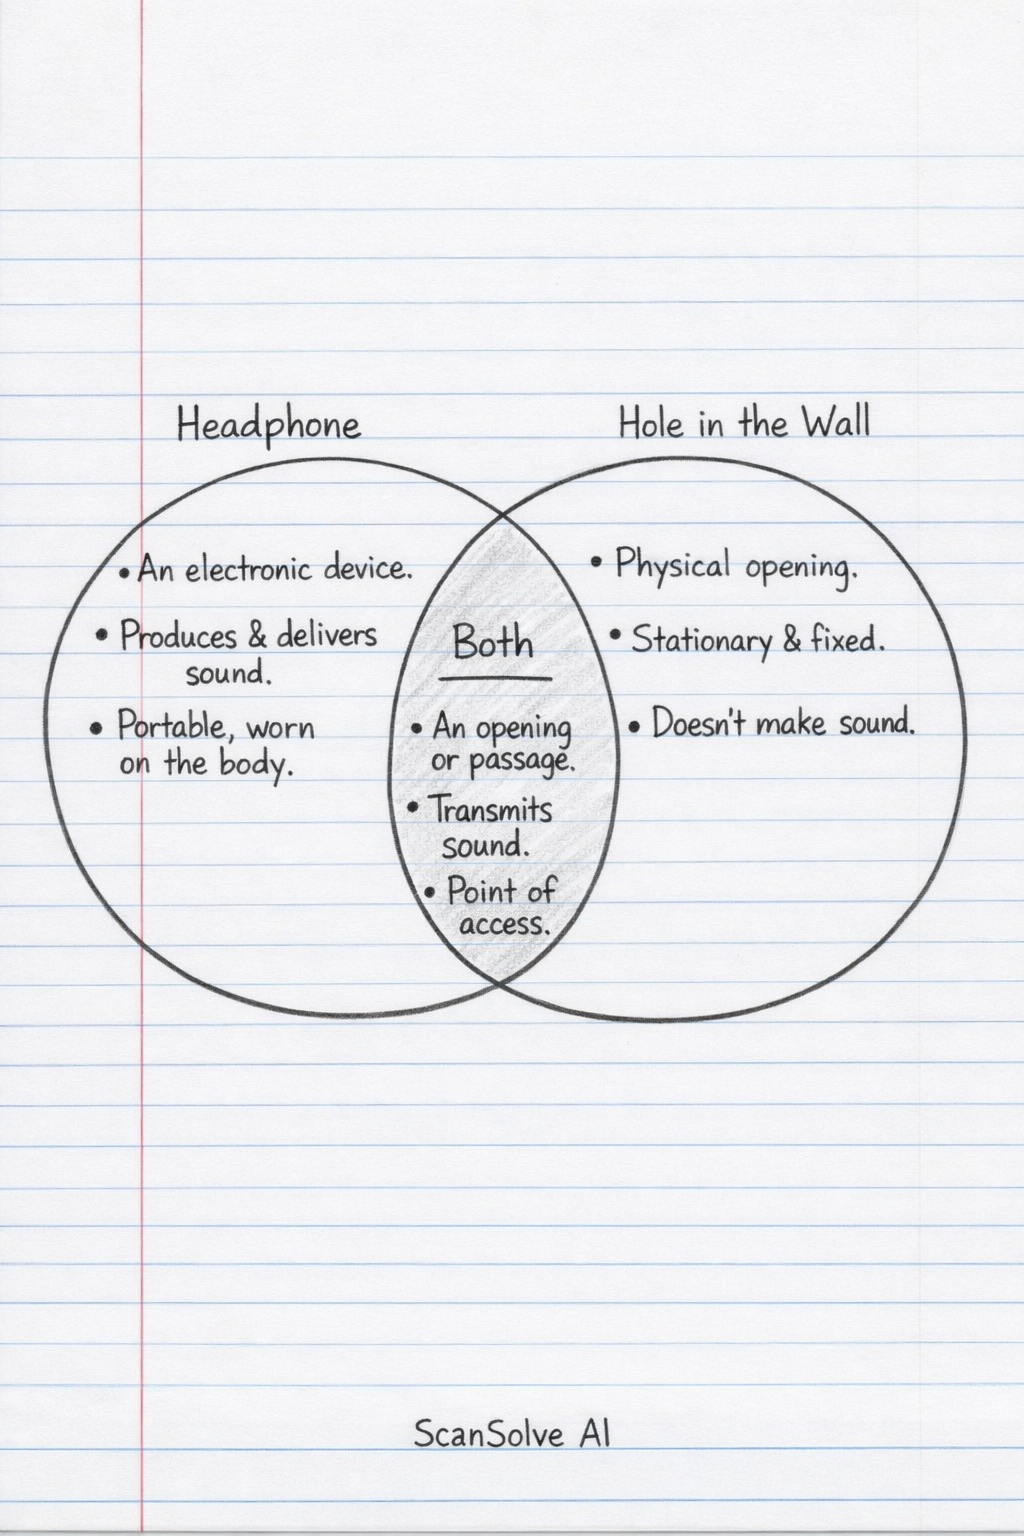 Headphone
Hole in the Wall
• An electronic device.
• Produces & delivers
sound.
• Portable, worn
on the body.
Both
• An opening
or passage.
• Transmits
sound.
• Point of
access.
• Physical opening.
• Stationary & fixed.
• Doesn't make sound.
ScanSolve AI